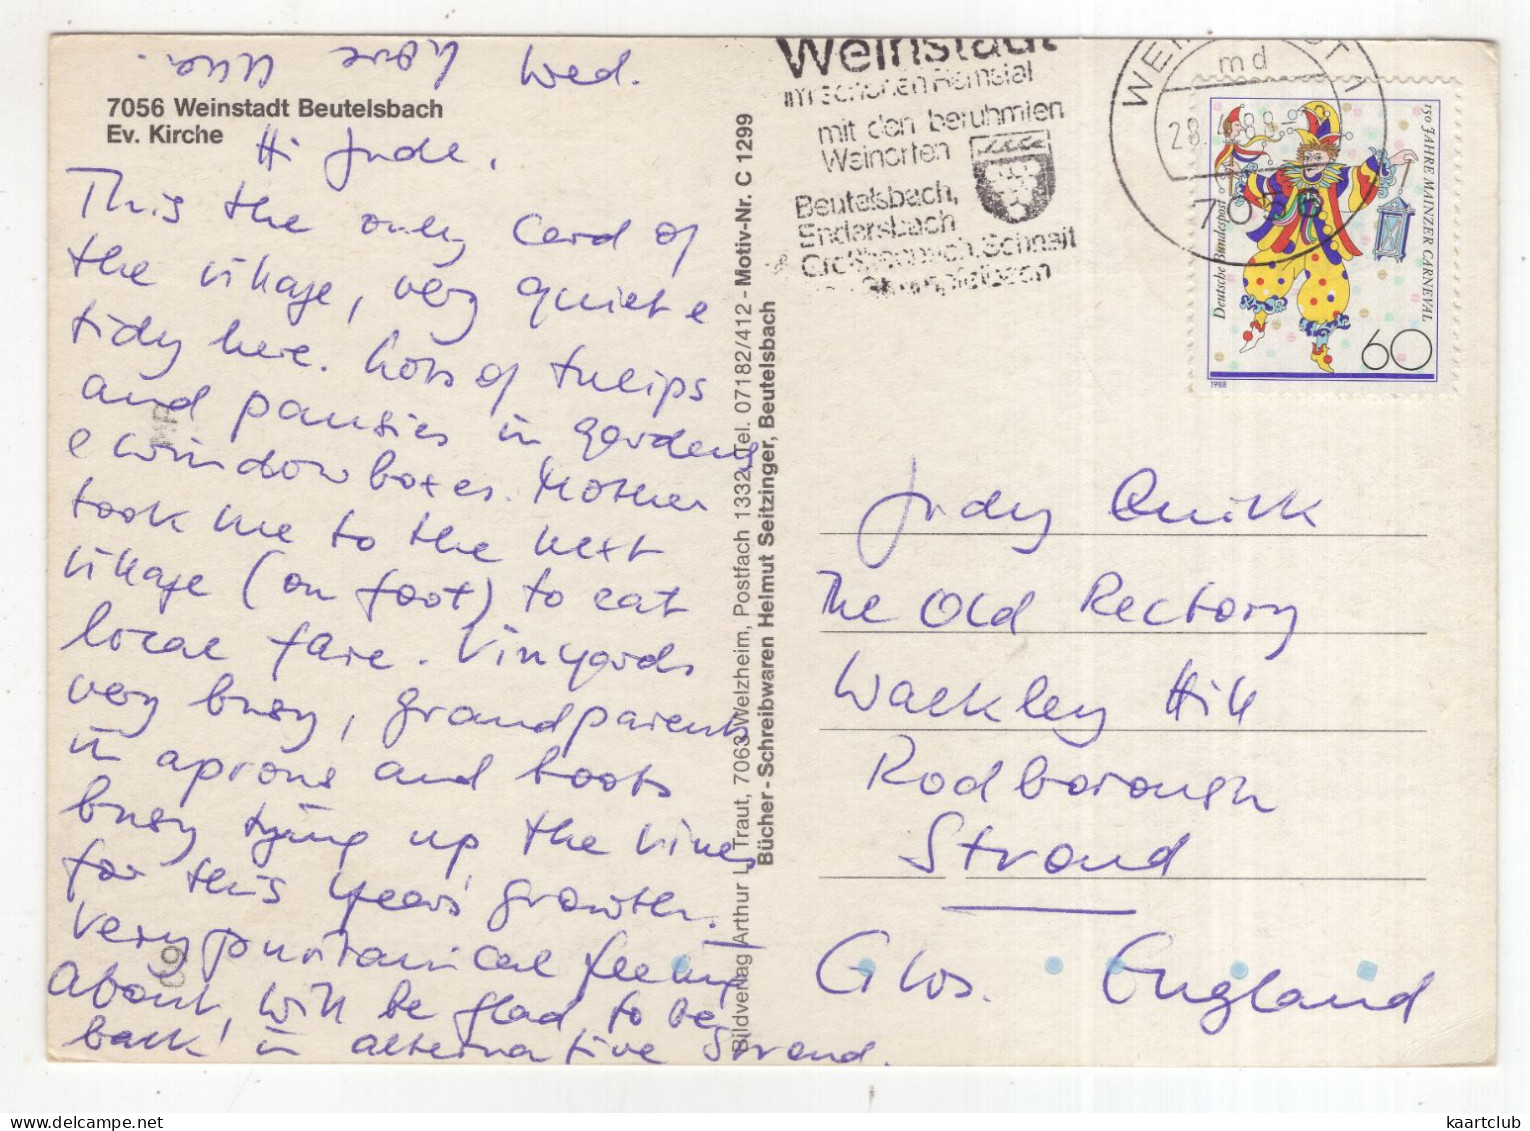 Wed.
Love
7056 Weinstadt Beutelsbach
Ev. Kirche
Hi Jude,
This the only card of
the village, very quiet &
tidy here. Lots of tulips
and pansies in gardens
& window boxes. Mother
took me to the next
village (on foot) to eat
local fare. Vinyards
very busy, grandparents
in aprons and boots
busy tying up the vines
for this years' growth.
Very puritanical feeling
about, will be glad to be
back in alternative Stroud.
Bildverlag Arthur Traut, 7063 Welzheim, Postfach 1332, Tel. 07182/412 - Motiv-Nr. C 1299
Bücher - Schreibwaren Helmut Seitzinger, Beutelsbach
Weinstadt
im schönen Remstal
mit den berühmten
Weinorten
Beutelsbach,
Endersbach
Großheppach, Schnait
md
7056
150 JAHRE MAINZER CARNEVAL
Deutsche Bundespost
60
1988
Judy Quirk
The Old Rectory
Walkley Hill
Rodborough
Stroud
Glos. England